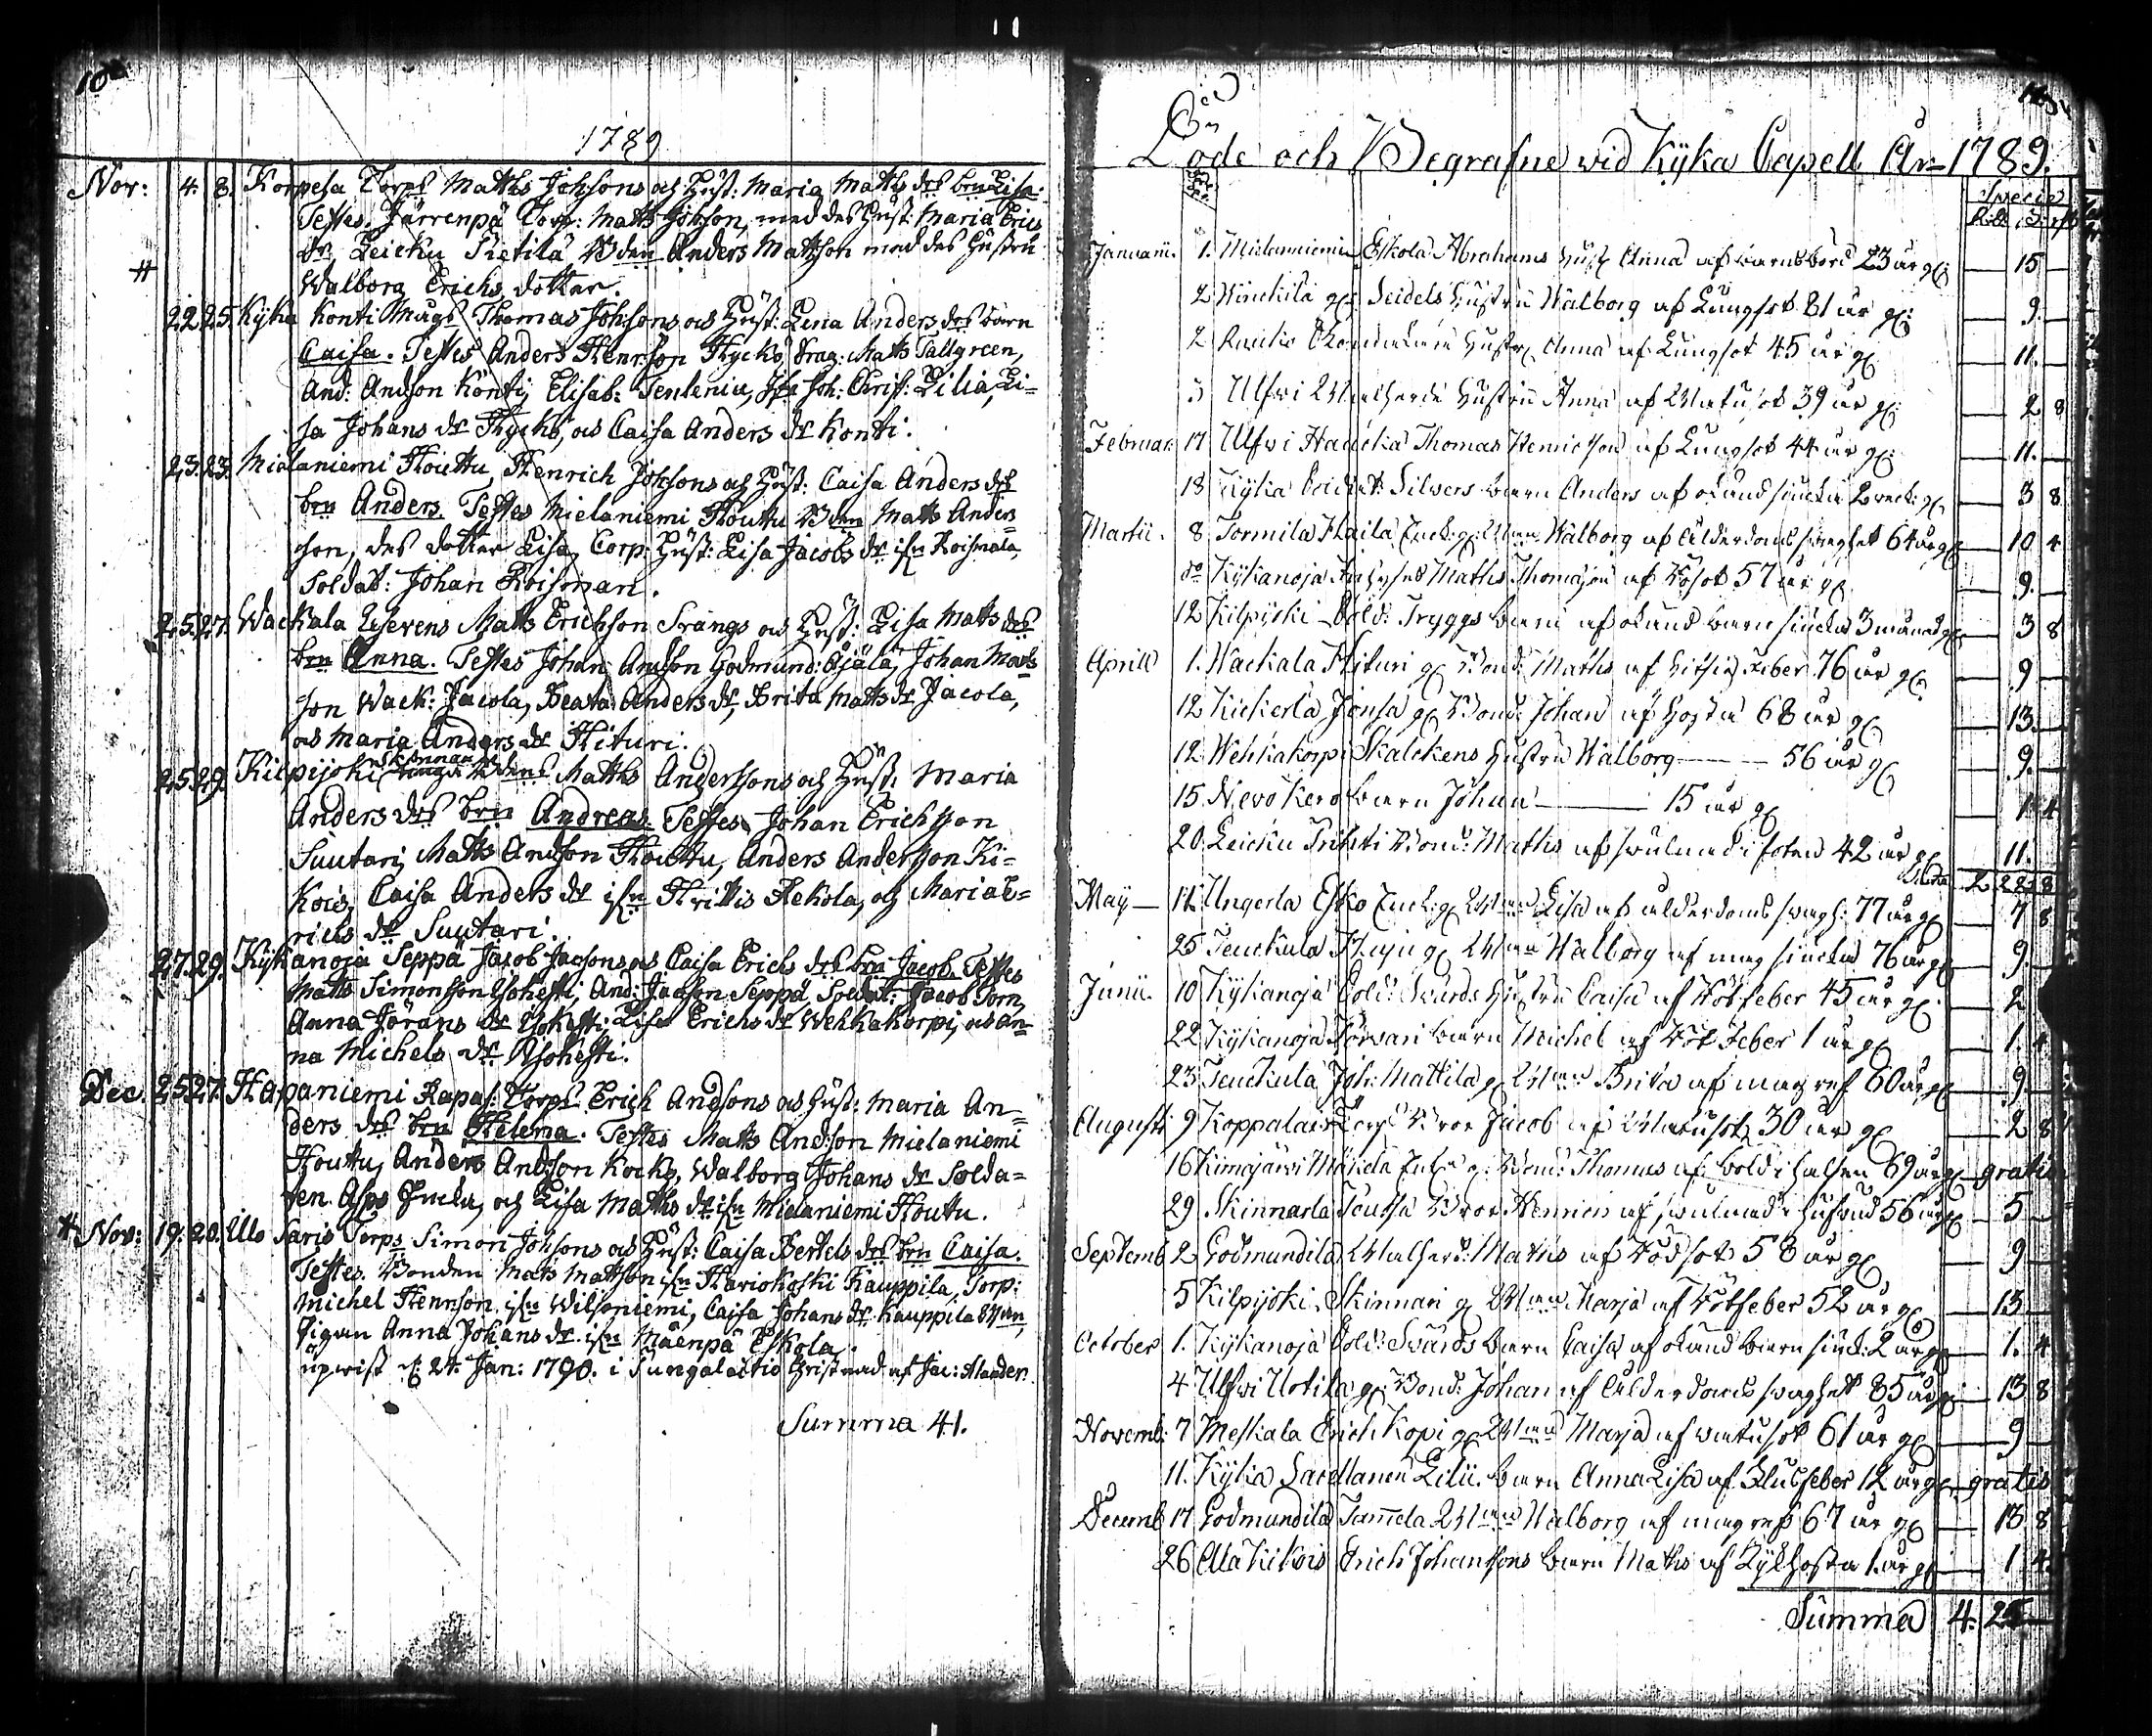 11
10
1789
Nov: 4. 8. Korpela Torps Matths Johsons och Hust: Maria Matths drs brn Lisa.
Testes. Järrenpä Torp: Matts Johson, med des Hust: Maria Erics
dr, Leicku Kietilä Bden Anders Mattson med des Hustru
# Walborg Erichs dotter.
22 25. Kyka Konti Mågs Thomas Johsons och Hust: Lena Anders drs barn
Caisa. Testes Anders Henrson Hycko, Drag: Matts Tallgreen,
And: Andson Konti, Elisab: Joh: Christ: Lilia, Li=
sa Johans dr Hycko, och Caisa Anders dr Konti.
23. 23. Mielaniemi Houttu, Henrich Johsons och Hust: Caisa Anders drs
brn Anders. Testes Mielaniemi Houttu Bden Matts Anders=
son, des dotter Lisa, Torp: Hust: Lisa Jacobs dr ifrn Roismala,
Soldat: Johan Roisman.
25. 27. Wackala Matts Erichson Srängs och Hust: Lisa Matts drs
brn Anna. Testes Johan Andson Godmund: Äijälä, Johan Mats
son Wack: Jacola, Beata Anders dr, Brita Matts dr Jacola,
och Maria Anders dr Hituri.
25. 29. Kilpijoki Skinnari Bdens Matths Anderssons och Hust: Maria
Anders drs brn Andreas. Testes Johan Erichson
Suutari, Matts Andson Houttu, Anders Anderson Ki=
kois, Caisa Anders dr ifrn Hrittis Hekola, och Maria E=
richs dr Suutari.
27. 29. Kykanoja Seppä Jacob Jacsons och Caisa Erichs drs brn Jacob. Testes
Matts Simonson Isohesti, And: Jacson Seppä, Soldat: Jacob Torn,
Anna Jörans dr Isohesti, Lisa Erichs dr Wehkakorpi, och An=
na Michels dr Isohesti.
Dec. 25. 27. Hapaniemi Rapas: Torps Erich Andsons och Hust: Maria An=
ders drs brn Helena. Testes Matts Andson Mielaniemi
Houttu, Anders Andson Kocko, Walborg Johans dr Solda=
ten Asps Encka, och Lisa Matths dr ifrn Mielaniemi Houttu.
# Nov: 19. 20. Ulo Saris Torps Simon Johsons och Hust: Caisa Bertels drs brn Caisa.
Testes. Bonden Mats Mattson ifrn Hariokoski Kauppila, Torp:
Michel Henrson ifrn Wilsoniemi, Caisa Johans dr Kauppila
Pigan Anna Johans dr ifrn Mäenpä Eskola.
upwist d: 24. Jan: 1790. i Sungalactio Christnad af Jac: Alander.
Summa 41.
Döde och Begrafne wid Kyka Capell År 1789.
Specie
Rdr s rst
Januarii. 1. Mielaniemi Eskola Abrahams Hust Anna af barnsbörd 23 år gl: 15
2 Winckilä gl: Seidels Hustru Walborg af Lungsot 81 år gl: 9.
2 Hustr Anna af Lungsot 45 år gl 11.
3 Ulfwi Hustru Anna af Watusot 39 år gl: 2 8
Februar: 17 Ulfwi Haucka Thomas Henricson af Lungsot 44 år gl: 11.
18 Kyka Silwers barn Anders af okänd siucka 2 weck: gl 3 8
Martii. 8 Tormila Haila Walborg af Ålderdoms swaghet 64 år gl 10 4
do Kykanoja Inhyses Matths Thomason af Rösot 57 år gl 9.
12 Kilpijoki Sold: Tryggs barn af okänd barn siucka 3 månad gl 3 8
Aprill 1. Wackala Hituri gl Bond: Matths af Hitsig Feber 76 år gl 9
12 Kickerlä Jonsa gl Bond: Johan af Hosta 68 år gl 13.
12 Wehkakorpi Skalckens Hustru Walborg — 56 år gl 9.
15. Nevo Kero barn Johan — 15 år gl 1 4
20. Leicku Bond: Matths af swulnad i foten 42 år gl 11.
2 22 8
May 14. Ungerla Esko Lisa af ålderdoms swagh: 77 år gl 7 8
25 Teuckula gl Walborg af mag siucka 76 år gl 9.
Junii. 10 Kykanoja Sold: Swärds Hustru Caisa af Rötfeber 45 år gl 2
22 Kykanoja Torwari barn Michel af Röt Feber 1 år gl 1. 4
23 Teuckula Joh: Mattila gl Brita af mag ref 60 år gl 9
Augusti 9 Koppalais Torp Bror Jacob af Watusot 30 år gl 2 8
16 Kimojärwi Mäkelä gl: Bond: Thomas af böld i halsen 69 år gl gratis
29 Skinnarla Toussa Bror Henric af swulnad i hufwud 56 år gl 5
Septemb 2 Godmundila Matths af Rödsot 58 år gl 9
5 Kilpijoki Skinnari gl Marja af Rötfeber 52 år gl 13
October 1. Kykanoja Sold: Swärds barn Caisa af okänd barn siuck: 2 år gl 1. 4
4 Ulfwi Uotila gl: Bond: Johan af Ålderdoms swaghet 85 år gl 13 8
Novemb: 7 Meskala Erich Kopi gl Marja af watusot 61 år gl 9
11. Kyka Sacellanen Lilii barn Anna Lisa af Slusfeber 12 år gl gratis
Decemb 17 Godmundila Tamela Walborg af mag ref 67 år gl 13 8
26 Alla Kikois Erich Johansons barn Maths af Kykhosta 1. år gl 1 4
Summa 4. 25